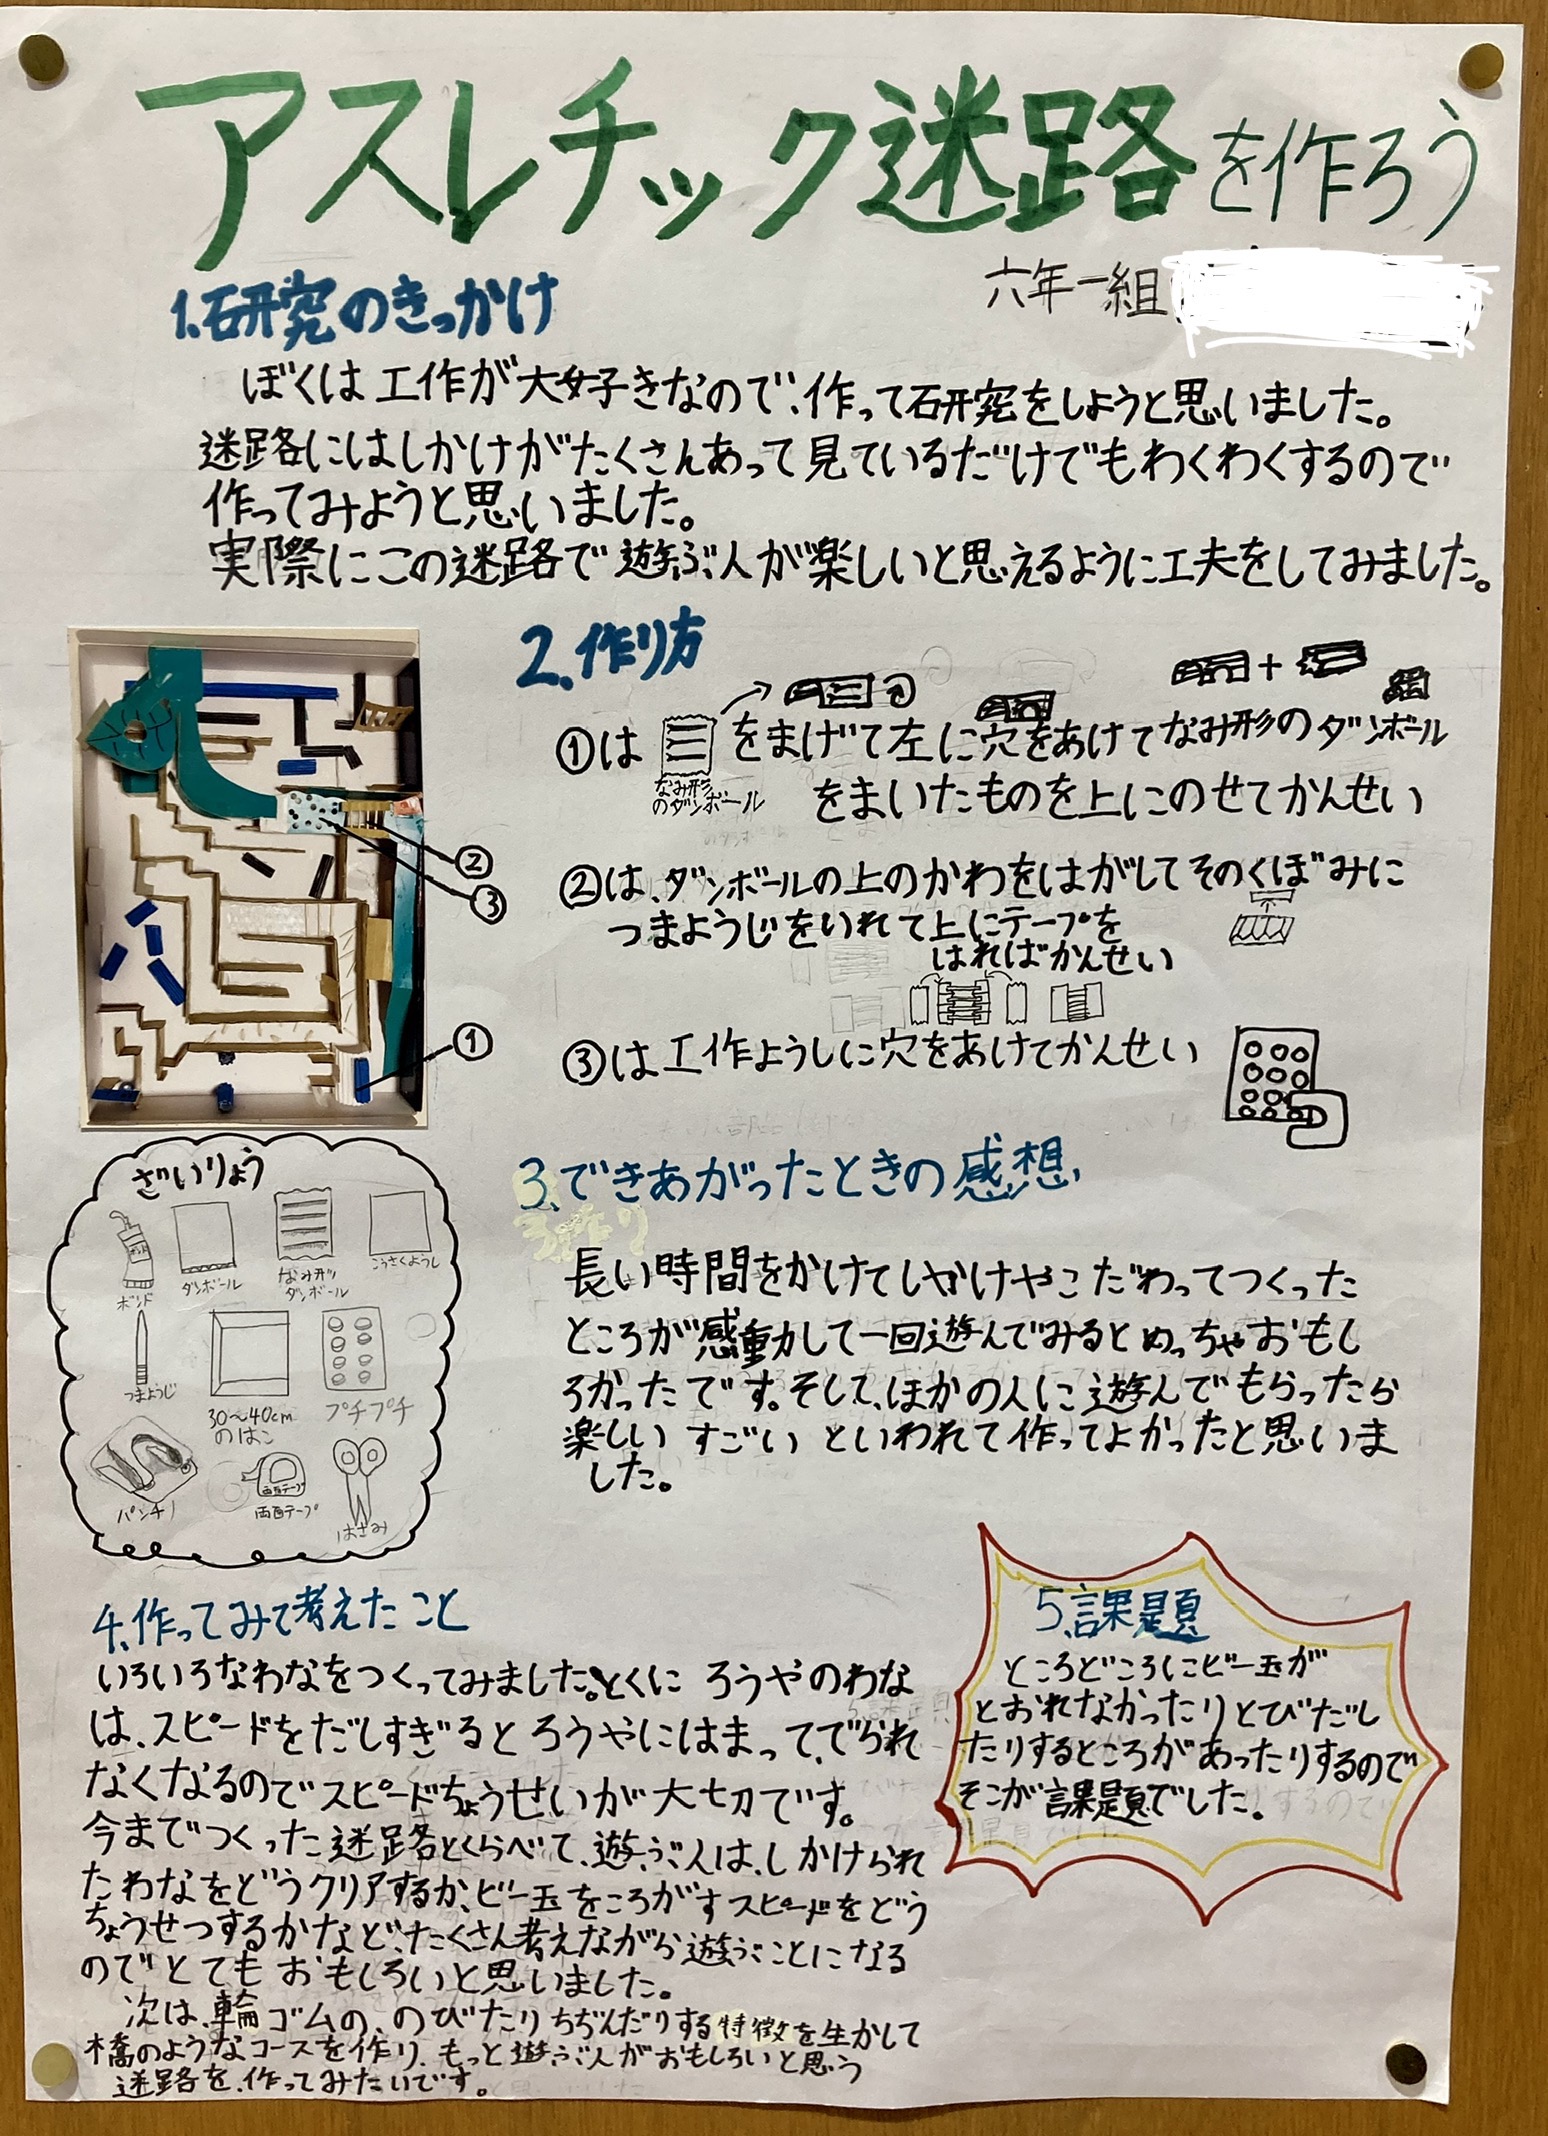 アスレチック迷路を作ろう
六年一組
1.研究のきっかけ
ぼくは工作が大好きなので、作って研究をしようと思いました。
迷路にはしかけがたくさんあって見ているだけでもわくわくするので
作ってみようと思いました。
実際にこの迷路で遊ぶ人が楽しいと思えるように工夫をしてみました。
2.作り方
①は
なみ形
のダンボール
をまげて左に穴をあけてなみ形のダンボール
をまいたものを上にのせてかんせい
②は、ダンボールの上のかわをはがしてそのくぼみに
つまようじをいれて上にテープを
はればかんせい
③は工作ようしに穴をあけてかんせい
②
③
①
ざいりょう
ボンド
ボンド
ダンボール
なみ形
ダンボール
こうさくようし
つまようじ
30~40cm
のはこ
プチプチ
パンチ
両面テープ
両面テープ
はさみ
3.できあがったときの感想
長い時間をかけてしかけやこだわってつくった
ところが感動して一回遊んでみるとめっちゃおもし
ろかったです。そして、ほかの人に遊んでもらったら
楽しい すごい といわれて作ってよかったと思いま
した。
4.作ってみて考えたこと
いろいろなわなをつくってみました。とくに ろうやのわな
は、スピードをだしすぎると ろうやにはまって、でられ
なくなるのでスピードちょうせいが大切です。
今までつくった迷路とくらべて、遊ぶ人は、しかけられ
たわなをどうクリアするか、ビー玉をころがすスピードをどう
ちょうせつするかなど、たくさん考えながら遊ぶことになる
のでとてもおもしろいと思いました。
次は、輪ゴムの、のびたりちぢんだりする特徴を生かして
橋のようなコースを作り、もっと遊ぶ人がおもしろいと思う
迷路を、作ってみたいです。
5.課題
ところどころにビー玉が
とおれなかったりとびだし
たりするところがあったりするので
そこが課題でした。